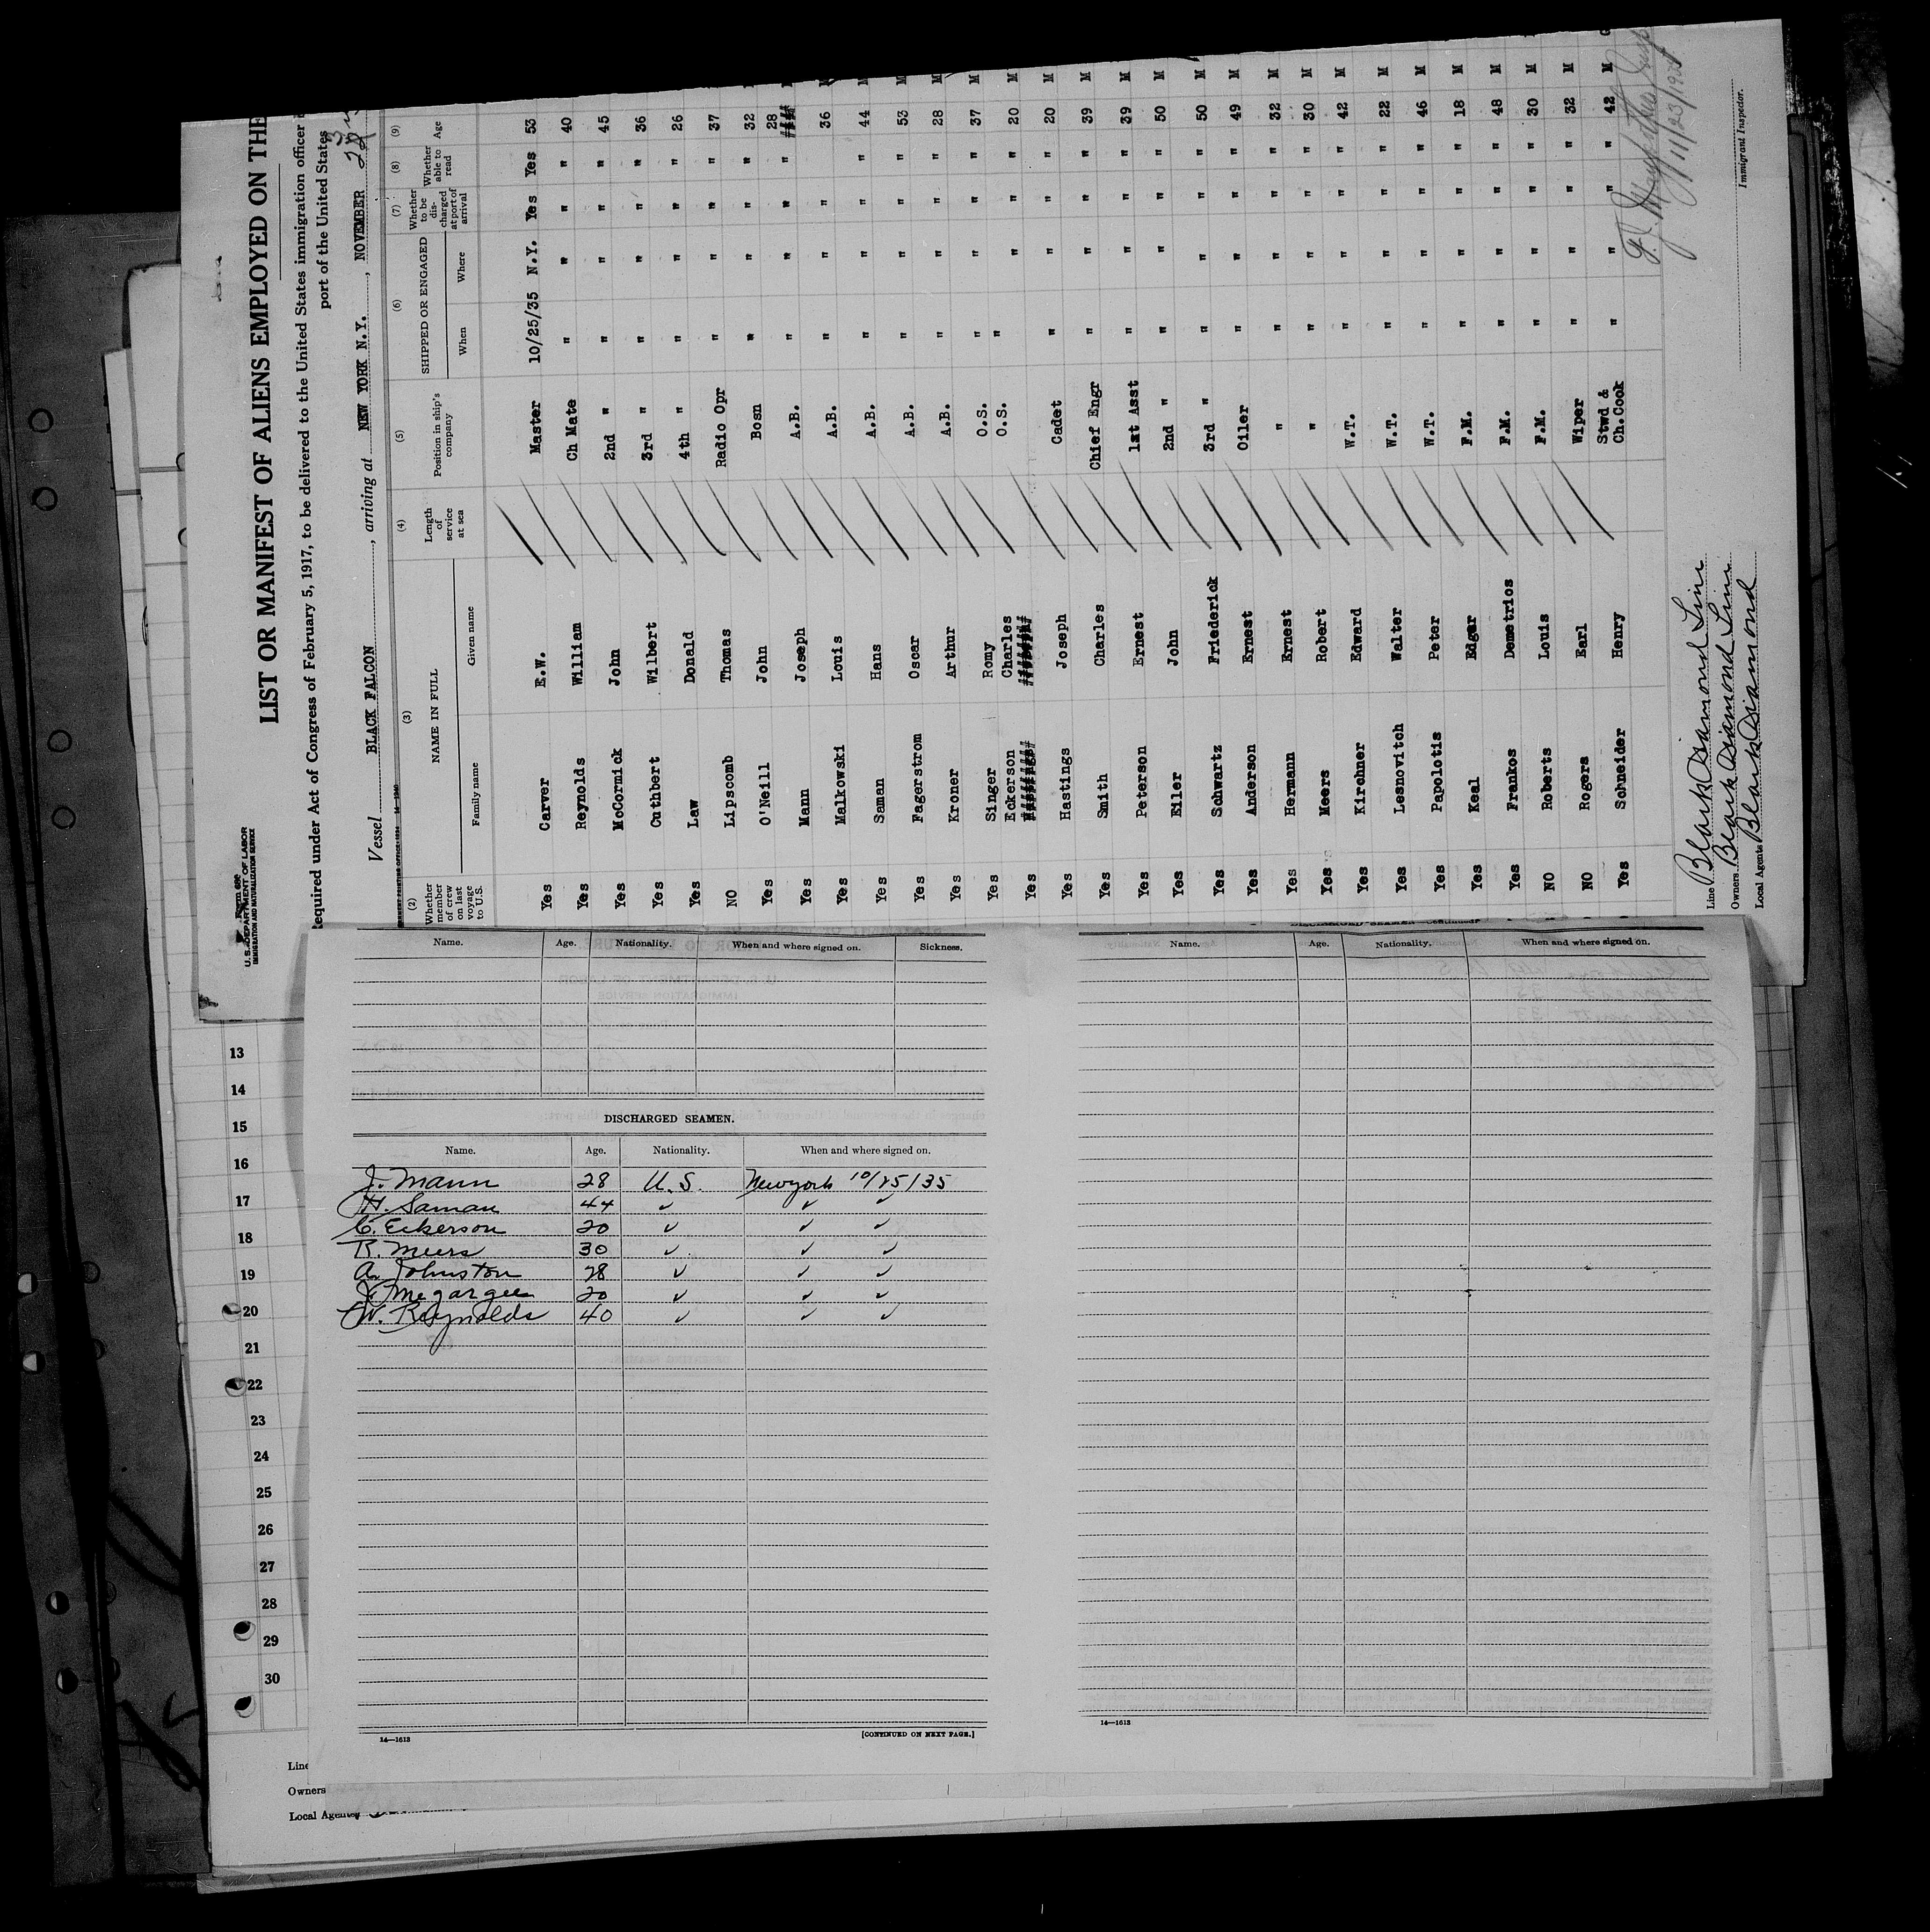 Form 680
U.S. DEPARTMENT OF LABOR
IMMIGRATION AND NATURALIZATION SERVICE
LIST OR MANIFEST OF ALIENS EMPLOYED ON THE
Required under Act of Congress of February 5, 1917, to be delivered to the United States immigration officer
port of the United States
Vessel BLACK FALCON, arriving at NEW YORK N.Y., NOVEMBER 23
(2) (3) (4) (5) (6) (7) (8) (9)
Whether member of crew on last voyage to U.S. NAME IN FULL Length of service at sea Position in ship's company SHIPPED OR ENGAGED Whether to be discharged at port of arrival Whether able to read Age
Family name Given name When Where
Yes Carver E.W. Master 10/25/35 N.Y. Yes Yes 53
Yes Reynolds William Ch Mate " " " " 40 M
Yes McCormick John 2nd " " " " " 45 M
Yes Cuthbert Wilbert 3rd " " " " " 36 M
Yes Law Donald 4th " " " " " 26
NO Lipscomb Thomas Radio Opr " " " " 37
Yes O'Neill John Bosn " " " " 32 M
Yes Mann Joseph A.B. " " " " 28
Yes Malkowski Louis A.B. " " " 36 M
Yes Saman Hans A.B. " " " " 44 M
Yes Fagerstrom Oscar A.B. " " " " 53 M
Yes Kroner Arthur A.B. " " " " 28 M
Yes Singer Romy O.S. " " " " 37 M
Yes Eckerson Charles O.S. " " " " 20 M
Yes Hastings Joseph Cadet " " " " 20 M
Yes Smith Charles Chief Engr " " " " 39 M
Yes Peterson Ernest 1st Asst " " " " 39 M
Yes Eiler John 2nd " " " " " 50 M
Yes Schwartz Friederick 3rd " " " " " 50 M
Yes Anderson Ernest Oiler " " " " 49 M
Yes Hermann Ernest " " " " " 32 M
Yes Meers Robert " " " " " 30 M
Yes Kirchner Edward W.T. " " " " 42 M
Yes Lesnovitch Walter W.T. " " " " 22 M
Yes Papolotis Peter W.T. " " " " 46 M
Yes Keal Edgar F.M. " " " " 18 M
Yes Frankos Demetrios F.M. " " " " 48 M
NO Roberts Louis F.M. " " " " 30 M
NO Rogers Earl Wiper " " " " 32 M
Yes Schneider Henry Stwd & Ch.Cook " " " " 42 M
11/23/1935
Immigrant Inspector.
Line Black Diamond Line
Owners Black Diamond Line
Local Agents Black Diamond
Name. Age. Nationality. When and where signed on. Sickness.
DISCHARGED SEAMEN.
Name. Age. Nationality. When and where signed on.
J. Mann 28 U.S. New york 10/25/35
H. Saman 44 ✓ ✓ ✓
C. Eckerson 20 ✓ ✓ ✓
R. Meers 30 ✓ ✓ ✓
A. Johnston 28 ✓ ✓ ✓
J. Megargee 20 ✓ ✓ ✓
W. Reynolds 40 ✓ ✓ ✓
14—1613
[CONTINUED ON NEXT PAGE.]
Name. Age. Nationality. When and where signed on.
14—1613
13
14
15
16
17
18
19
20
21
22
23
24
25
26
27
28
29
30
Line
Owners
Local Agents